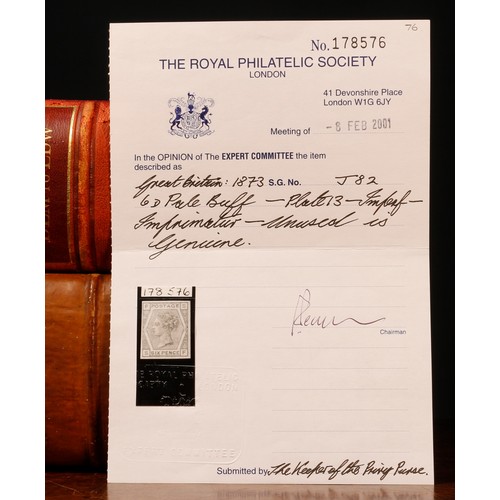 76
No. 178576
THE ROYAL PHILATELIC SOCIETY
LONDON
41 Devonshire Place
London W1G 6JY
Meeting of - 8 FEB 2001
In the OPINION of The EXPERT COMMITTEE the item
described as
Great Britain: 1873 S.G. No. J82
6D Pale Buff - Plate 13 - Imperf -
Imprimatur - Unused is
Genuine.
178 576
POSTAGE
SIX PENCE
Chairman
Submitted by The Keeper of the Privy Purse.